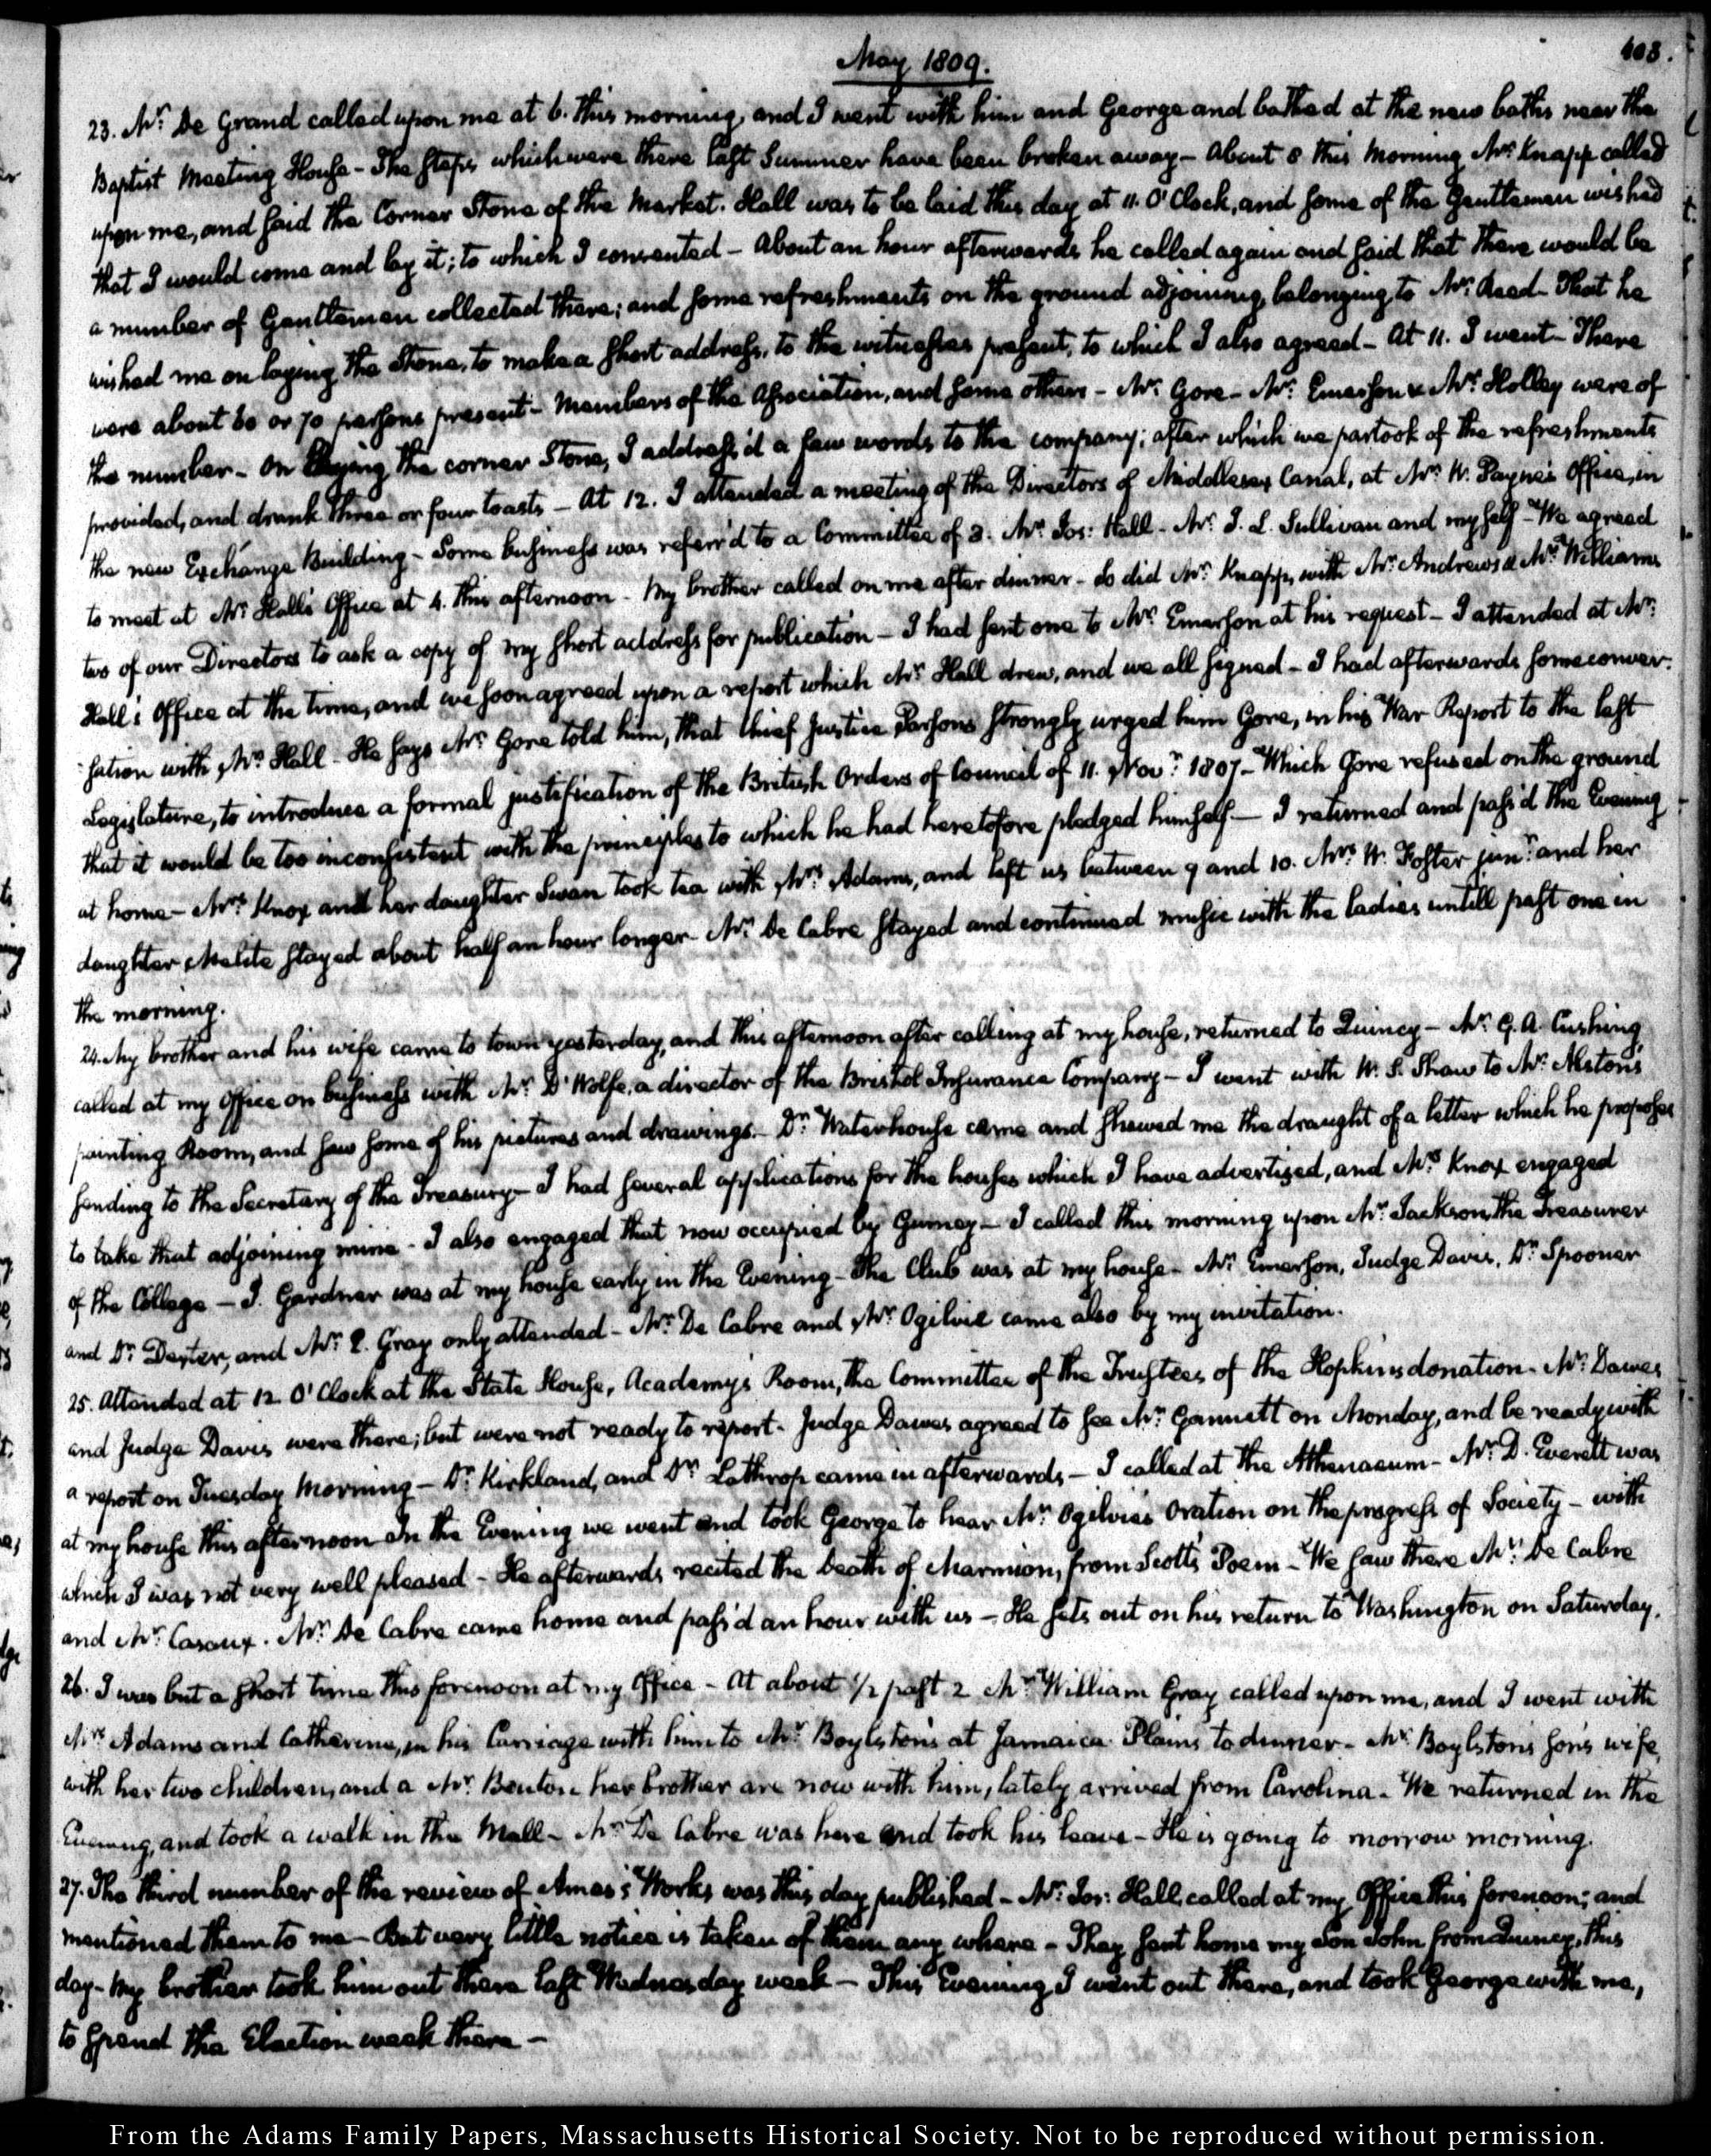 May 1809.
403.
23. Mr. De Grand called upon me at 6. this morning, and I went with him and George and bathed at the new baths near the
Baptist Meeting House - The steps which were there last Summer have been broken away - About 8 this morning Mr. Knapp called
upon me, and said the Corner Stone of the Market-Hall was to be laid this day at 11. O'Clock, and some of the Gentlemen wished
that I would come and lay it; to which I consented - About an hour afterwards he called again and said that there would be
a number of Gentlemen collected there; and some refreshments on the ground adjoining, belonging to Mr. Read - That he
wished me on laying the Stone, to make a short address, to the witnesses present, to which I also agreed - At 11. I went - There
were about 60 or 70 persons present - Members of the Association, and some others - Mr. Gore - Mr. Emerson & Mr. Holley were of
the number - On laying the corner Stone, I address'd a few words to the company; after which we partook of the refreshments
provided, and drank three or four toasts - At 12. I attended a meeting of the Directors of Middlesex Canal, at Mr. W. Payne's Office, in
the new Exchange Building - Some business was referr'd to a Committee of 3. Mr. Jos: Hall - Mr. J. L. Sullivan and myself - We agreed
to meet at Mr. Hall's Office at 4. this afternoon - My brother called on me after dinner - So did Mr. Knapp, with Mr. Andrews & Mr. Williams
two of our Directors to ask a copy of my short address for publication - I had sent one to Mr. Emerson at his request - I attended at Mr.
Hall's Office at the time, and we soon agreed upon a report which Mr. Hall drew, and we all signed - I had afterwards some conver-
sation with Mr. Hall - He says Mr. Gore told him, that Chief Justice Parsons strongly urged him Gore, in his War Report to the last
Legislature, to introduce a formal justification of the British Orders of Council of 11. Novr. 1807 - Which Gore refused on the ground
that it would be too inconsistent with the principles to which he had heretofore pledged himself - I returned and pass'd the Evening
at home - Mrs. Knox and her daughter Swan took tea with Mrs. Adams, and left us between 9 and 10. Mrs. W. Foster junr. and her
daughter Melite stayed about half an hour longer - Mr. De Cabre stayed and continued music with the ladies untill past one in
the morning.
24. My brother and his wife came to town yesterday, and this afternoon after calling at my house, returned to Quincy - Mr. G. A. Cushing
called at my Office on business with Mr. D'Wolfe, a director of the Bristol Insurance Company - I went with W. S. Shaw to Mr. Alston's
painting Room, and saw some of his pictures and drawings - Dr. Waterhouse came and shewed me the draught of a letter which he proposes
sending to the Secretary of the Treasury - I had several applications for the houses which I have advertized, and Mrs. Knox engaged
to take that adjoining mine - I also engaged that now occupied by Gurney - I called this morning upon Mr. Jackson, the Treasurer
of the College - J. Gardner was at my house early in the Evening - The Club was at my house - Mr. Emerson, Judge Davis, Dr. Spooner
and Dr. Dexter, and Mr. E. Gray only attended - Mr. De Cabre and Mr. Ogilvie came also by my invitation.
25. Attended at 12. O'Clock at the State House, Academy's Room, the Committee of the Trustees of the Hopkins donation - Mr. Dawes
and Judge Davis were there; but were not ready to report - Judge Dawes agreed to see Mr. Gannett on Monday, and be ready with
a report on Tuesday Morning - Dr. Kirkland, and Dr. Lathrop came in afterwards - I called at the Athenaeum - Mr. D. Everett was
at my house this afternoon In the Evening we went and took George to hear Mr. Ogilvie's Oration on the progress of Society - with
which I was not very well pleased - He afterwards recited the Death of Marmion, from Scott's Poem - We saw there Mr. De Cabre
and Mr. Cazaux. Mr. De Cabre came home and pass'd an hour with us - He sets out on his return to Washington on Saturday.
26. I was but a short time this forenoon at my Office - At about 1/2 past 2 Mr. William Gray called upon me, and I went with
Mrs. Adams and Catherine, in his Carriage with him to Mr. Boylston's at Jamaica Plains to dinner - Mr. Boylston's son's wife,
with her two children, and a Mr. Benton her brother are now with him, lately arrived from Carolina - We returned in the
Evening, and took a walk in the Mall - Mr. De Cabre was here and took his leave - He is going to morrow morning.
27. The third number of the review of Ames's Works was this day published - Mr. Jos: Hall called at my Office this forenoon; and
mentioned them to me - But very little notice is taken of them any where - They sent home my Son John from Quincy, this
day - My brother took him out there last Wednesday week - This Evening I went out there, and took George with me,
to spend the Election week there -
From the Adams Family Papers, Massachusetts Historical Society. Not to be reproduced without permission.